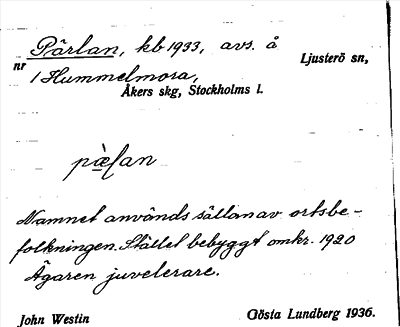 Pärlan, kb 1933, avs. å
Ljusterö sn,
nr 1 Hummelmora,
Åkers skg, Stockholms l.
pæ̀lan
Namnet används sällan av ortsbe-
folkningen. Stället bebyggt omkr. 1920
Ägaren juvelerare.
John Westin
Gösta Lundberg 1936.